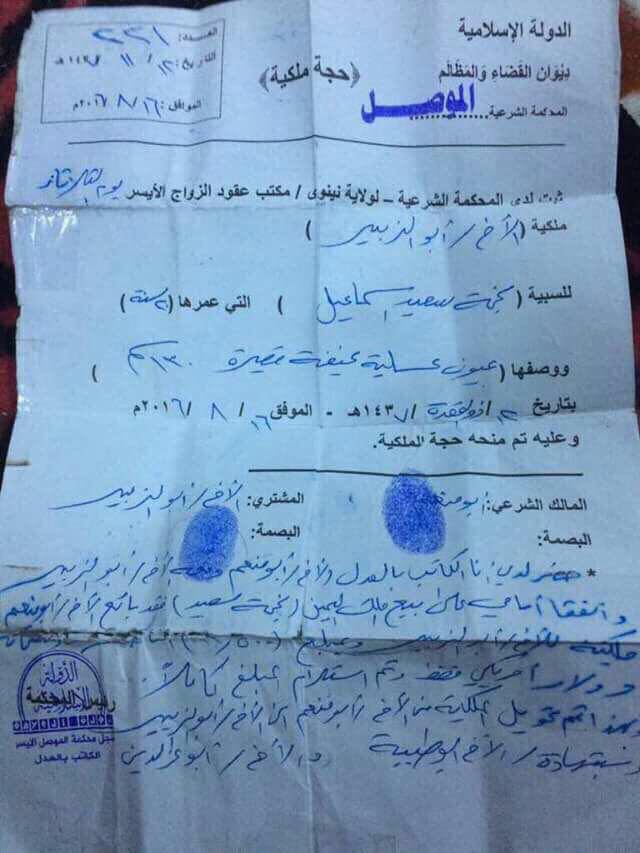 الدولة الإسلامية
ديوان القضاء والمظالم
المحكمة الشرعية
الموصل
﴿حجة ملكية﴾
العدد: ٢٢١
التاريخ: ١٢ / ١١ / ١٤٣٧هـ
الموافق: ١٦ / ٨ / ٢٠١٦م
ثبت لدى المحكمة الشرعية – لولاية نينوى / مكتب عقود الزواج الأيسر يوم الثلاثاء
ملكية (الأخ / أبو الزبير)
للسبية (نجمة سعيد اسماعيل) التي عمرها (٢٠ سنة)
ووصفها (عيون عسلية ضعيفة قصيرة ١٣٠ سم)
بتاريخ ١٢ / ذو القعدة / ١٤٣٧هـ - الموافق ١٦ / ٨ / ٢٠١٦م
وعليه تم منحه حجة الملكية.
المالك الشرعي: أبو منعم المشتري: الأخ / أبو الزبير
البصمة: البصمة:
* حضر لدي أنا الكاتب بالعدل الأخ / أبو منعم ومعه أخ / أبو الزبير
واتفقا أمامي على بيع ملك اليمين (نجمة سعيد) فقد بائع الأخ / أبو منعم
ملكيته للأخ / أبو الزبير وبمبلغ (١٥٠٠)
دولار أمريكي فقط وتم استلام المبلغ كاملاً.
وبهذا تم تحويل الملكية من الأخ / أبو منعم الى الأخ / أبو الزبير
وبشهادة / الأخ والأخ / أبو عز الدين
الدولة الإسلامية
سجل محكمة الموصل الأيسر
الكاتب بالعدل